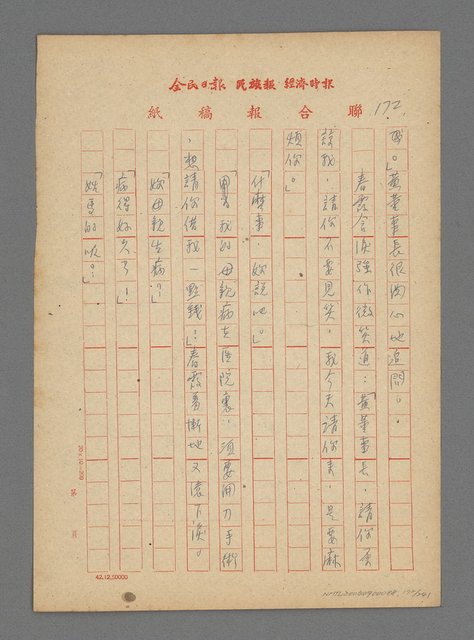 全民日報 民族報 經濟時報
聯合報稿紙
172
思。」黃董事長很關心地追問。
春霞含淚強作微笑道：「黃董事長，請你原
諒我，請你不要見笑，我今天請你來，是要麻
煩你。」
「什麼事，妳說吧。」
我的母親病在醫院裏，須要開刀手術
，想請你借我一點錢！」春霞羞慚地又流下淚。
「妳母親生病？」
「病得好久了！」
20×10=200
第 頁
42.12.50000